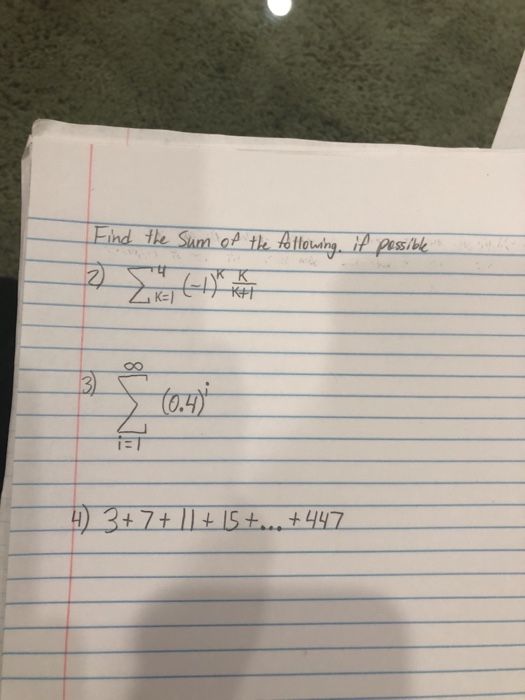 Find the Sum of the following. if possible
2) ∑ 4 K=1 (-1)^K K/K+1
3) ∞ ∑ i=1 (0.4)^i
4) 3+7+11+15+...+447